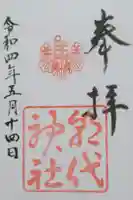 奉拝
網代神社
令和四年五月十四日